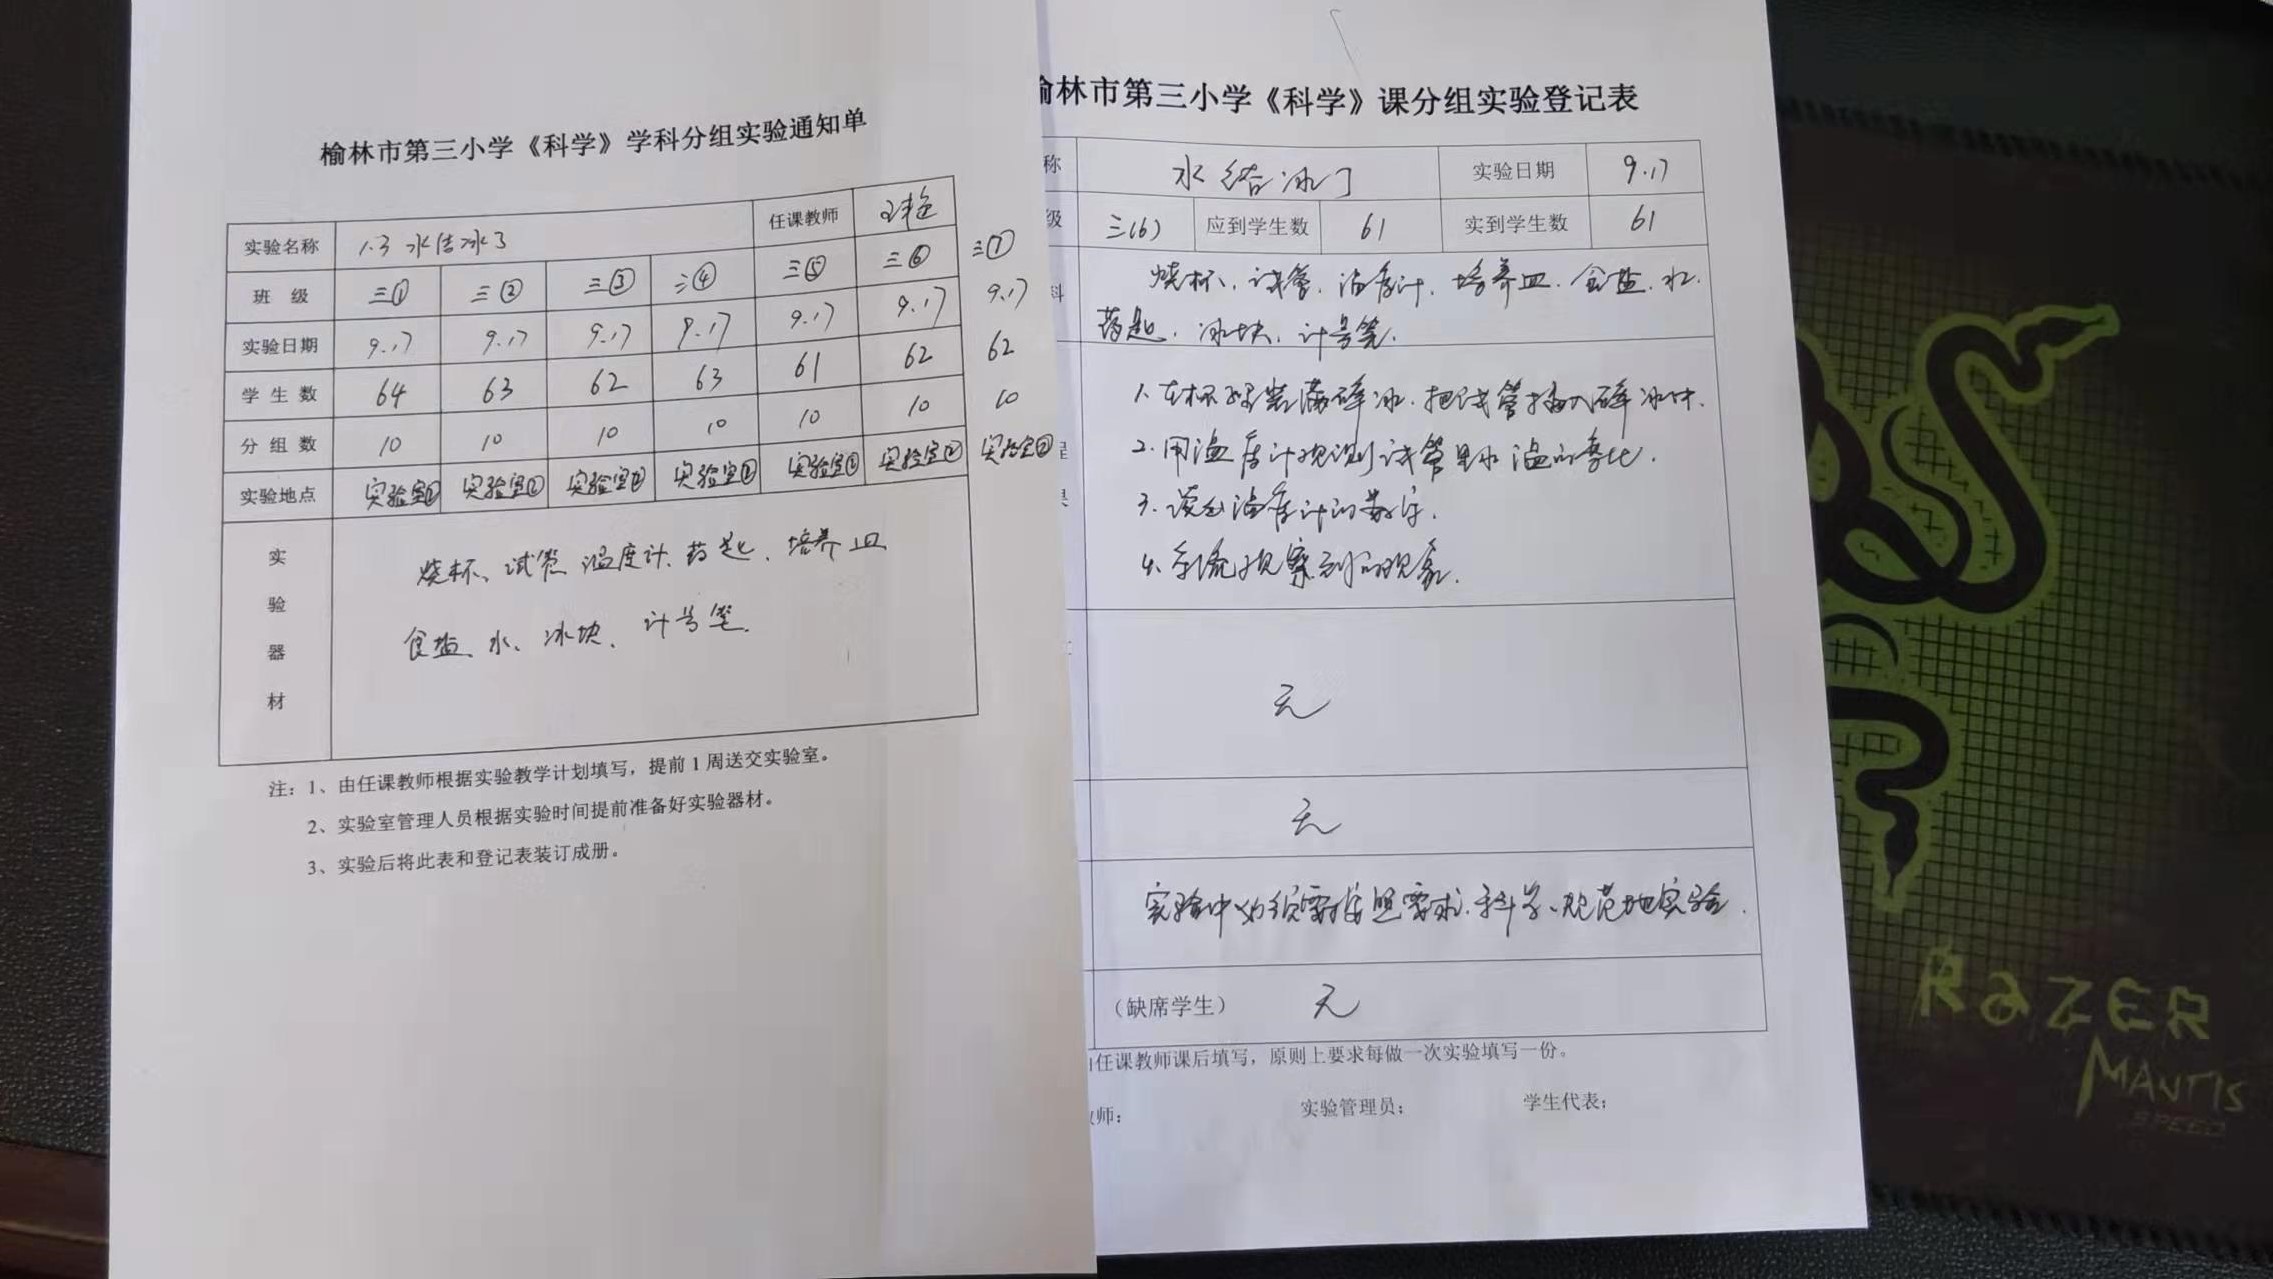 榆林市第三小学《科学》学科分组实验通知单
实验名称 1.3 水结冰了 任课教师
班 级 三① 三② 三③ 三④ 三⑤ 三⑥ 三⑦
实验日期 9.17 9.17 9.17 9.17 9.17 9.17 9.17
学 生 数 64 63 62 63 61 62 62
分 组 数 10 10 10 10 10 10 10
实验地点 实验室② 实验室② 实验室② 实验室② 实验室② 实验室② 实验室②
实验器材
烧杯、试管 温度计、药匙、培养皿
食盐、水、冰块、计号笔.
注：1、由任课教师根据实验教学计划填写，提前1周送交实验室。
2、实验室管理人员根据实验时间提前准备好实验器材。
3、实验后将此表和登记表装订成册。
榆林市第三小学《科学》课分组实验登记表
称 水结冰了 实验日期 9.17
级 三(6) 应到学生数 61 实到学生数 61
料 烧杯、试管、温度计、培养皿、食盐、水、
药匙、冰块、计号笔.
1. 在杯子装满碎冰.把试管插入碎冰中.
2. 用温度计观测试管里水温的变化.
3. 读出温度计的数字.
4. 手绘观察到的现象.
无
无
实验中必须要按照要求、科学、规范地实验.
（缺席学生） 无
任课教师课后填写，原则上要求每做一次实验填写一份。
师： 实验管理员： 学生代表：
RAZER
MANTIS
SPEED